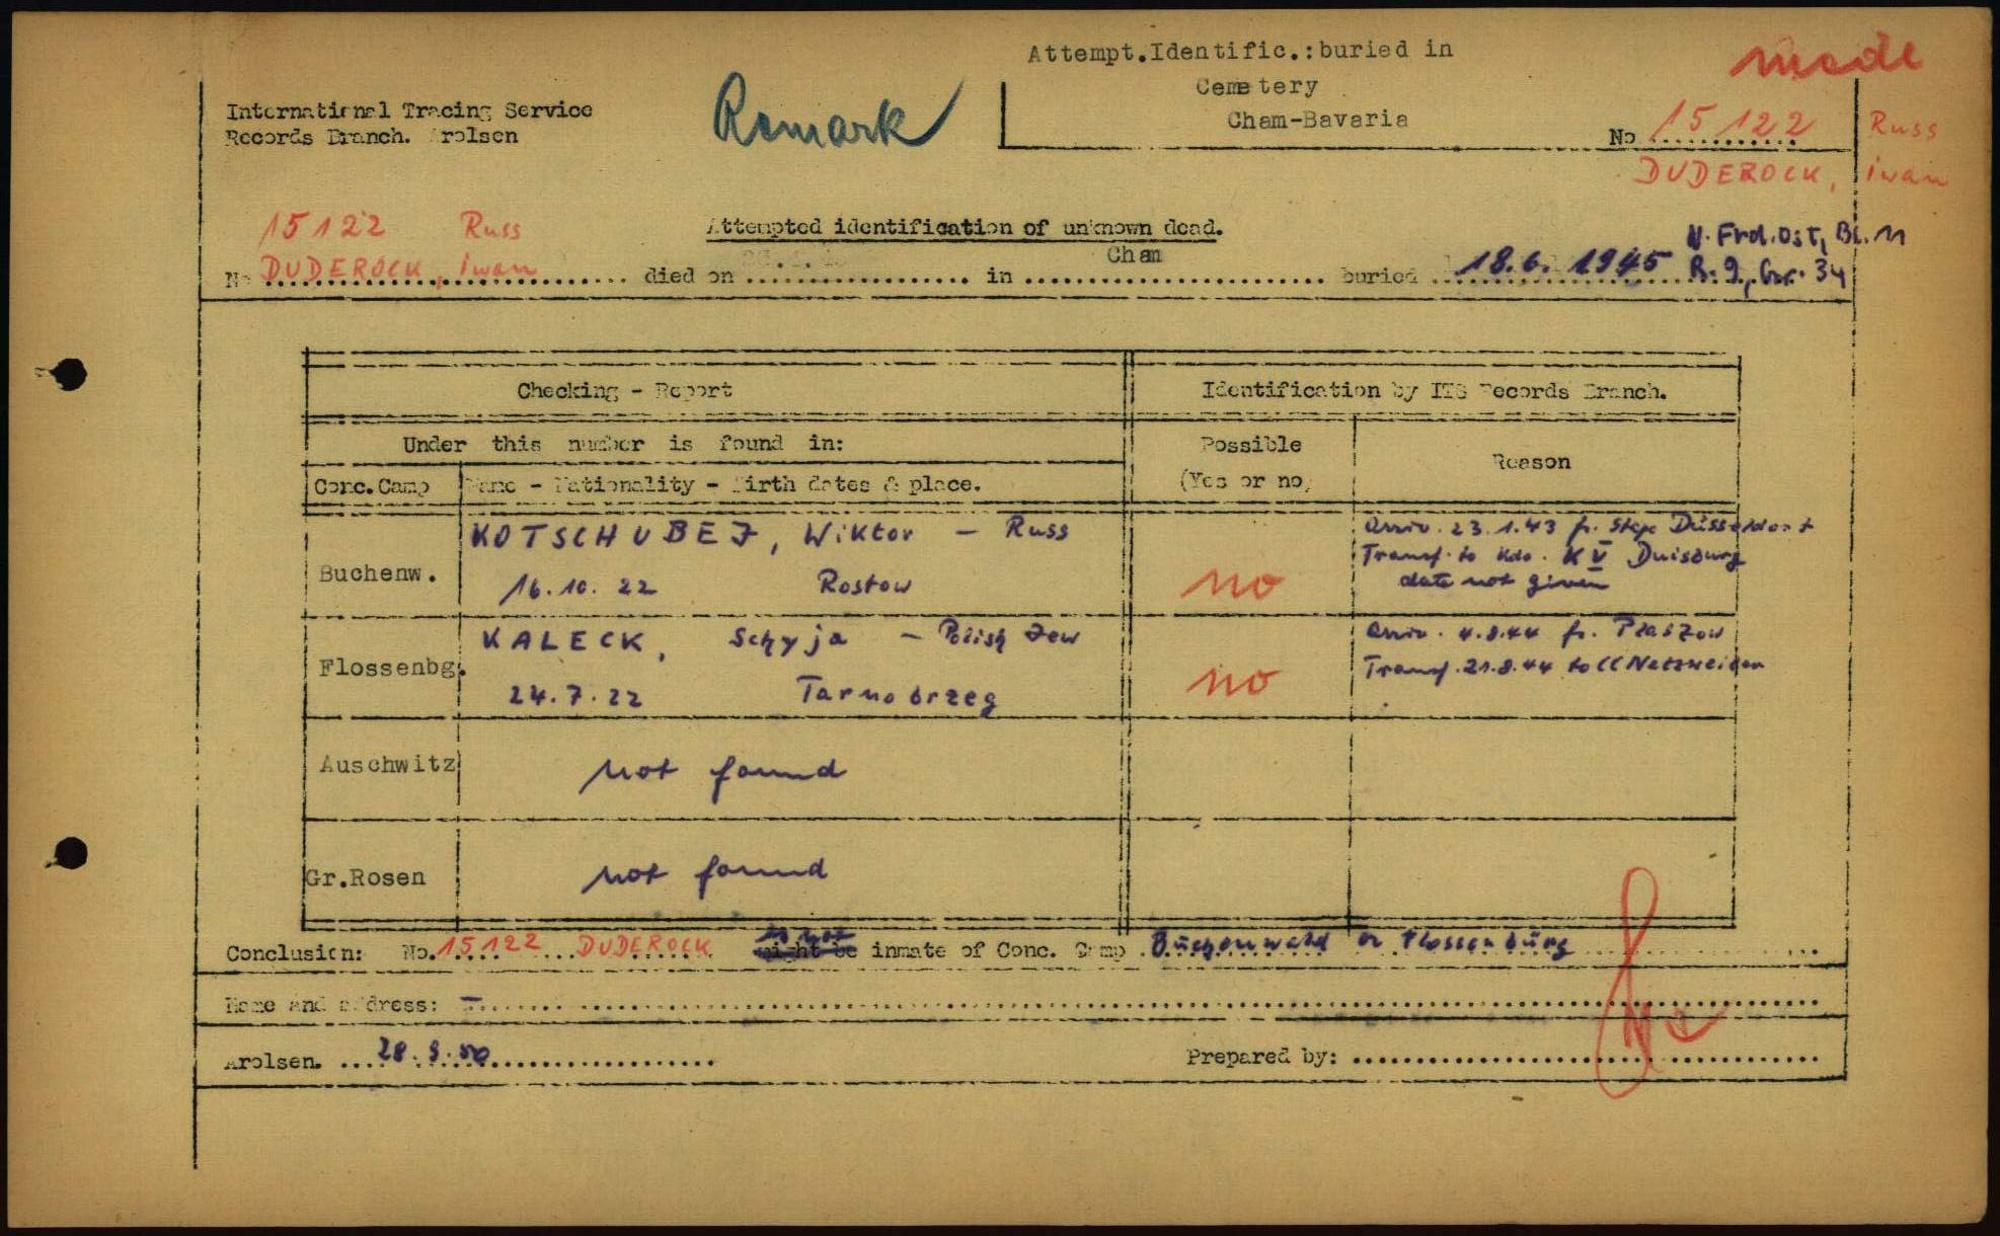 Attempt.Identific.:buried in
Cemetery
Cham-Bavaria
made
International Tracing Service
Records Branch. Arolsen
Remark
No 15122 Russ
DUDEROCK, iwan
15122 Russ
Attempted identification of unknown dead.
V. Frd.Ost, Bl. 11
No DUDEROCK, iwan died on in Cham buried 18.6. 1945 R. 9, Gr. 34
Checking - Report
Identification by ITS Records Branch.
Under this number is found in:
Possible
(Yes or no)
Reason
Conc.Camp
Name - Nationality - Birth dates & place.
Buchenw.
KOTSCHUBEJ, Wiktor - Russ
16.10. 22 Rostow
no
Arriv. 23.1.43 fr. Düsseldorf
Transf. to Kdo. K V Duisburg
date not given
Flossenbg.
KALECK, Schyja - Polish Jew
24.7.22 Tarnobrzeg
no
Arriv. 4.8.44 fr. Plaszow
Transf. 21.8.44 to CC Natzweiler
Auschwitz
not found
Gr.Rosen
not found
Conclusion: No. 15122 DUDEROCK is not might be inmate of Conc. Camp Buchenwald or Flossenbürg
Name and address: -
Arolsen. 28.9.50
Prepared by: